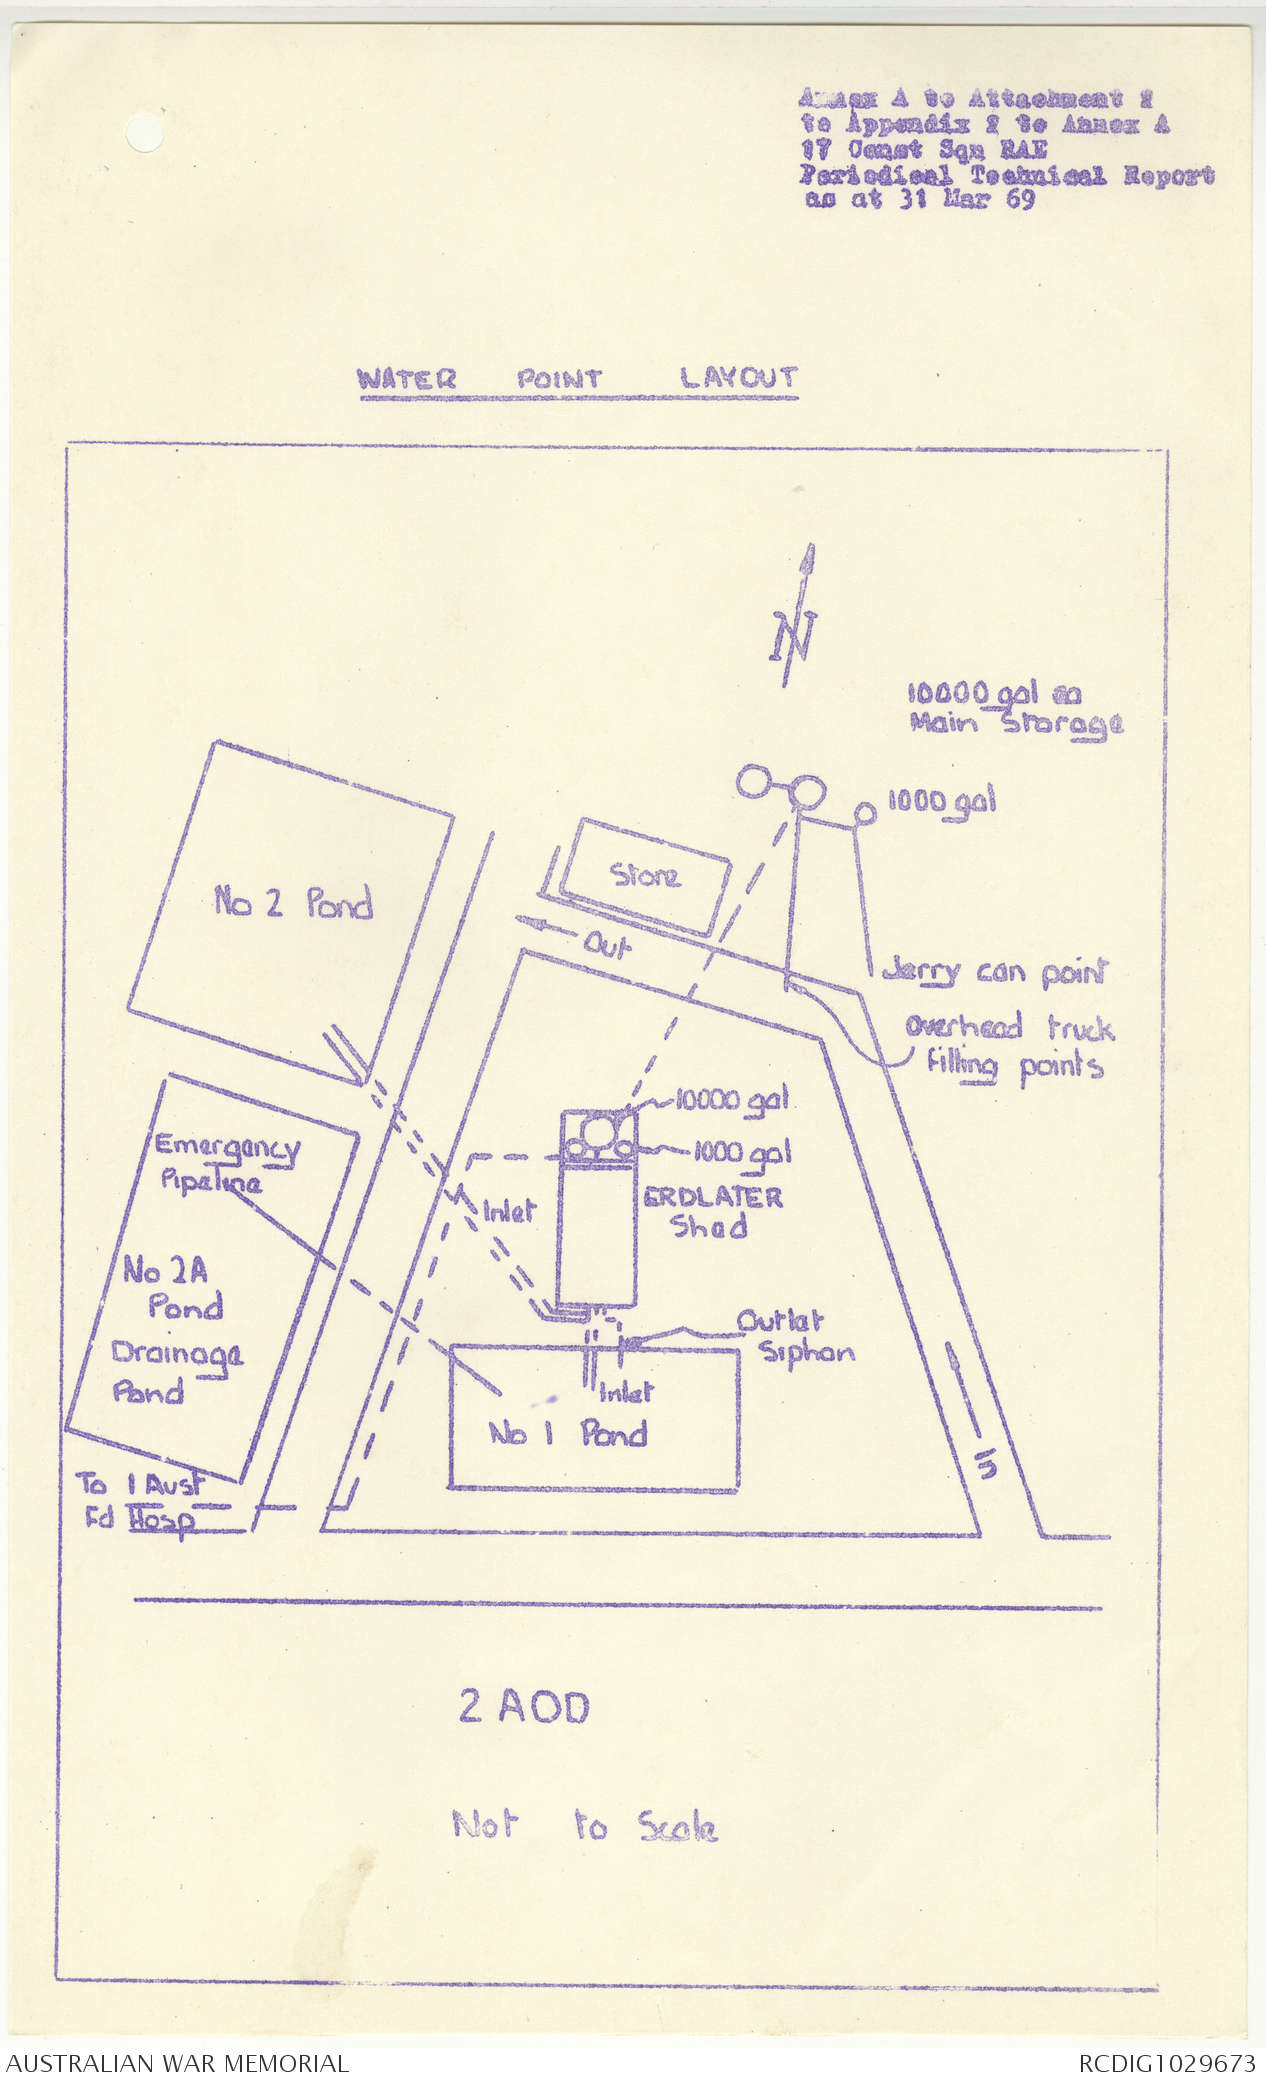 Annex A to Attachment 2
to Appendix 2 to Annex A
17 Const Sqn RAE
Periodical Technical Report
as at 31 Mar 69
WATER POINT LAYOUT
N
10000 gal ea
Main Storage
1000 gal
No 2 Pond
Store
Out
Jerry can point
Overhead truck
filling points
10000 gal
1000 gal
Emergency
Pipeline
ERDLATER
Shed
Inlet
No 2A
Pond
Drainage
Pond
Outlet
Siphon
Inlet
No 1 Pond
In
To 1 Aust
Fd Hosp
2 AOD
Not to Scale
AUSTRALIAN WAR MEMORIAL
RCDIG1029673